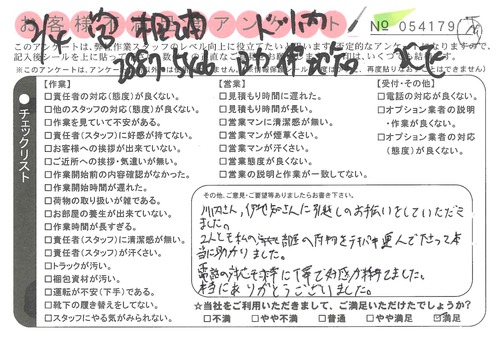 お客様アンケート
№ 054179
このアンケートは、弊社作業スタッフのレベル向上に役立てたい
記入後シールを上に貼って
【作業】
□責任者の対応(態度)が良くない。
□他のスタッフの対応(態度)が良くない。
□作業を見ていて不安がある。
□責任者(スタッフ)に好感が持てない。
□お客様への挨拶が出来ていない。
□ご近所への挨拶・気遣いが無い。
□作業開始前の内容確認がなかった。
□作業開始時間が遅れた。
□荷物の取り扱いが雑である。
□お部屋の養生が出来ていない。
□作業時間が長すぎる。
□責任者(スタッフ)に清潔感が無い。
□責任者(スタッフ)が汗くさい。
□トラックが汚い。
□梱包資材が汚い。
□運転が不安(下手)である。
□靴下の履き替えをしてない。
□スタッフにやる気がみられない。
【営業】
□見積もり時間に遅れた。
□見積もり時間が長い。
□営業マンに清潔感が無い。
□営業マンが煙草くさい。
□営業マンが汗くさい。
□営業態度が良くない。
□営業の説明と作業が一致してない。
【受付・その他】
□電話の対応が良くない。
□オプション業者の説明
・作業が良くない。
□オプション業者の対応
(態度)が良くない。
チェックリスト
その他、ご意見・ご要望等ありましたらお書き下さい。
川内さん、伊地知さんに引越しのお手伝いをしていただき
ました。
2人とも私の
部屋の荷物をテキパキ運んで下さって本
当に助かりました。
電話の対応も非常に丁寧で好感が持てました。
本当にありがとうございました。
☆当社をご利用いただきまして、ご満足いただけたでしょうか?
□不満 □やや不満 □普通 □やや満足 □満足